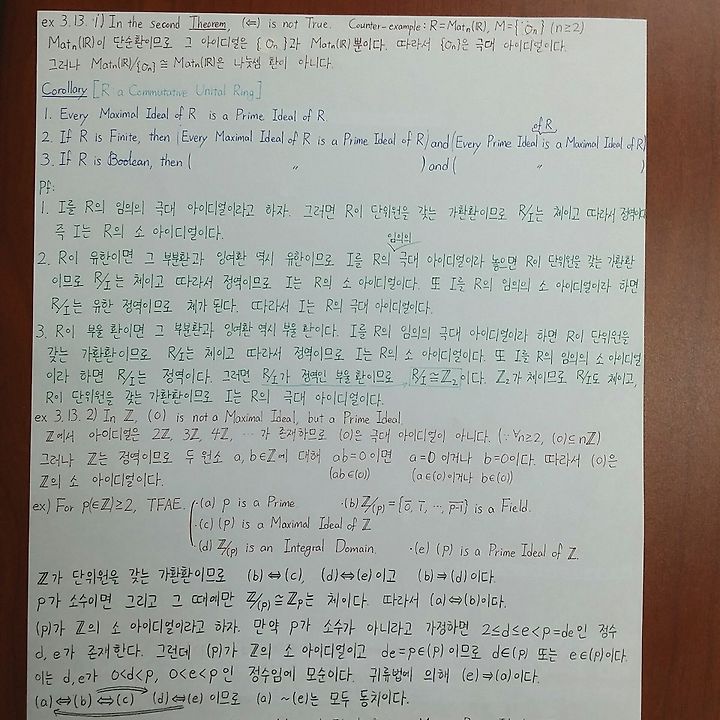 ex 3.13. 1') In the second Theorem, (⇐) is not True. Counter-example: R = Matₙ(ℝ), M = {Oₙ} (n≥2)
Matₙ(ℝ)이 단순환이므로 그 아이디얼은 {Oₙ}과 Matₙ(ℝ)뿐이다. 따라서 {Oₙ}은 극대 아이디얼이다.
그러나 Matₙ(ℝ)/{Oₙ} ≅ Matₙ(ℝ)은 나눗셈 환이 아니다.
Corollary [R a Commutative Unital Ring]
1. Every Maximal Ideal of R is a Prime Ideal of R
2. If R is Finite, then (Every Maximal Ideal of R is a Prime Ideal of R) and (Every Prime Ideal of R is a Maximal Ideal of R)
3. If R is Boolean, then ( 〃 ) and ( 〃 )
Pf:
1. I를 R의 임의의 극대 아이디얼이라고 하자. 그러면 R이 단위원을 갖는 가환환이므로 R/I는 체이고 따라서 정역이다
즉 I는 R의 소 아이디얼이다.
2. R이 유한이면 그 부분환과 잉여환 역시 유한이므로 I를 R의 임의의 극대 아이디얼이라 놓으면 R이 단위원을 갖는 가환환
이므로 R/I는 체이고 따라서 정역이므로 I는 R의 소 아이디얼이다. 또 I를 R의 임의의 소 아이디얼이라 하면
R/I는 유한 정역이므로 체가 된다. 따라서 I는 R의 극대 아이디얼이다.
3. R이 부울 환이면 그 부분환과 잉여환 역시 부울 환이다. I를 R의 임의의 극대 아이디얼이라 하면 R이 단위원을
갖는 가환환이므로 R/I는 체이고 따라서 정역이므로 I는 R의 소 아이디얼이다. 또 I를 R의 임의의 소 아이디얼
이라 하면 R/I는 정역이다. 그러면 R/I가 정역인 부울 환이므로 R/I ≅ ℤ₂이다. ℤ₂가 체이므로 R/I도 체이고,
R이 단위원을 갖는 가환환이므로 I는 R의 극대 아이디얼이다.
ex 3.13. 2) In ℤ, (0) is not a Maximal Ideal, but a Prime Ideal
ℤ에서 아이디얼은 2ℤ, 3ℤ, 4ℤ, ⋯가 존재하므로 (0)은 극대 아이디얼이 아니다. (∵ ∀n≥2, (0)⊆nℤ)
그러나 ℤ는 정역이므로 두 원소 a, b∈ℤ에 대해 ab=0이면 a=0이거나 b=0이다. 따라서 (0)은
(ab∈(0)) (a∈(0)이거나 b∈(0))
ℤ의 소 아이디얼이다.
ex) For p(∈ℤ)≥2, TFAE. ·(a) p is a Prime ·(b) ℤ/(p) = {0̄, 1̄, ⋯, p-1} is a Field.
·(c) (p) is a Maximal Ideal of ℤ
·(d) ℤ/(p) is an Integral Domain. ·(e) (p) is a Prime Ideal of ℤ.
ℤ가 단위원을 갖는 가환환이므로 (b)⇔(c), (d)⇔(e)이고 (b)⇒(d)이다.
p가 소수이면 그리고 그 때에만 ℤ/(p) ≅ ℤₚ는 체이다. 따라서 (a)⇔(b)이다.
(p)가 ℤ의 소 아이디얼이라고 하자. 만약 p가 소수가 아니라고 가정하면 2≤d≤e<p=de인 정수
d, e가 존재한다. 그런데 (p)가 ℤ의 소 아이디얼이고 de=p∈(p)이므로 d∈(p) 또는 e∈(p)이다.
이는 d, e가 0<d<p, 0<e<p인 정수임에 모순이다. 귀류법에 의해 (e)⇒(a)이다.
(a)⇔(b)⇔(c) (d)⇔(e)이므로 (a)~(e)는 모두 동치이다.